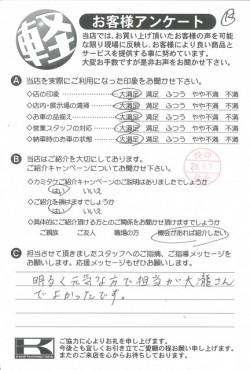 軽
お客様アンケート
当店では、お買い上げ頂いたお客様の声を可能
な限り現場に反映し、お客様により良い商品と
サービスを提供する事に努めています。
大変お手数ですが是非お声をお聞かせ下さい。
A 当店を実際にご利用になった印象をお聞かせ下さい。
◇店の印象 大満足 満足 ふつう やや不満 不満
◇店内・展示場の清掃 大満足 満足 ふつう やや不満 不満
◇お車の品揃え 大満足 満足 ふつう やや不満 不満
◇営業スタッフの対応 大満足 満足 ふつう やや不満 不満
◇納車時のお車の状態 大満足 満足 ふつう やや不満 不満
B 当店はご紹介を大切にしております。
ご紹介キャンペーンについてお聞かせ下さい。
◇カミタケご紹介キャンペーンのご説明はありましたでしょうか
はい いいえ
◇ご紹介を頂けますでしょうか
はい いいえ
◇具体的にご紹介頂ける方とのご関係をお聞かせ頂けますでしょうか
ご親族 ご友人 職場の方 機会があれば紹介したい
C 担当させて頂きましたスタッフへのご指摘、ご指導メッセージを
お願いします。応援メッセージもぜひお願いします。
明るく元気な方で担当が大瀧さん
でよかったです。
K
ご協力に心よりお礼を申し上げます。
今後とも宜しくお引き立てご愛顧の程お願い申し上げます。
またのご来店を心からお待ちしております。